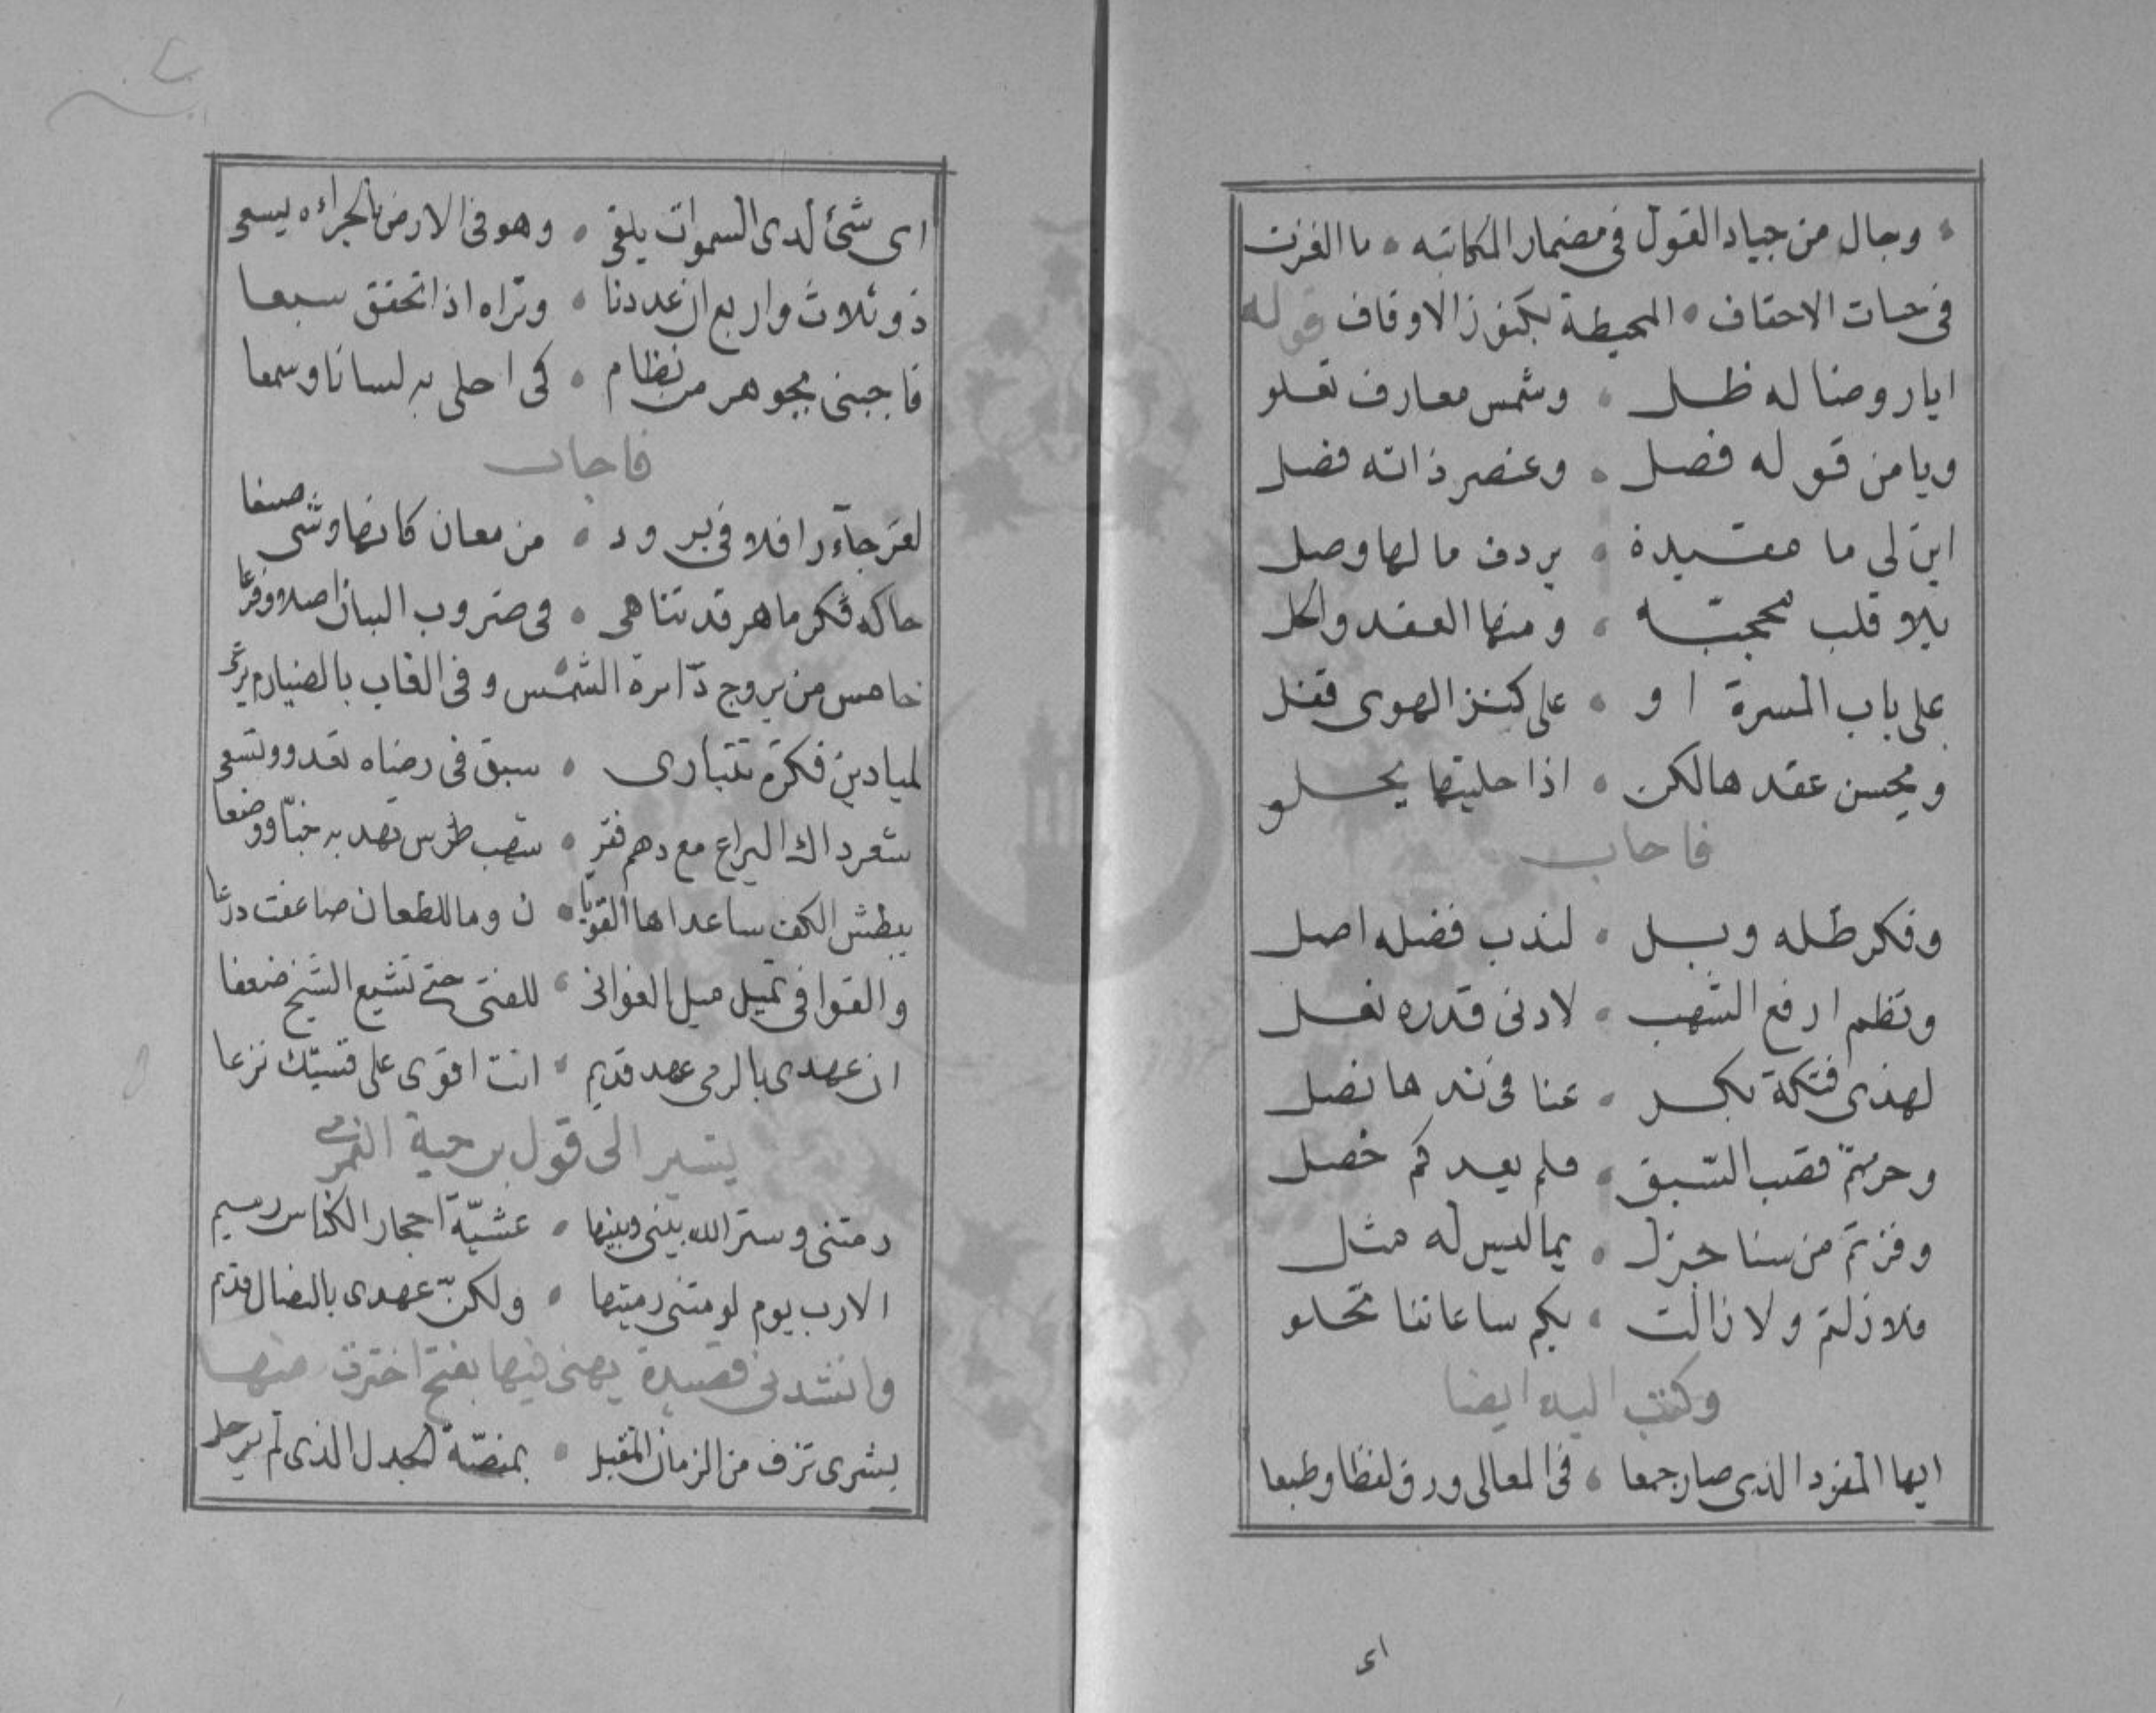 وجال من جياد القول في مضمار المكاتبه • ما الغزت
في حسات الاحقاف • المحيطة بكنوز الاوقاف قوله
ايا روضا له ظل • وشمس معارف تعلو
ويا من قوله فصل • وعنصر ذاته فضل
ابن لي ما مقيدة • بردف ما لها وصل
بلا قلب محجبة • ومنها العقد والحل
على باب المسرة او • على كنز الهوى قفل
ويحسن عقدها لكن • اذا حليتها يحلو
فاجاب
وفكر طله وبل • لندب فضله اصل
ونظم ارفع الشهب • لادنى قدره نعل
لهذى فتكة بكر • عنا في ندها نصل
وحزتم قصب السبق • فلم يعدكم خصل
وفزتم من سنا جزل • بما ليس له مثل
فلا زلتم ولا زالت • بكم ساعاتنا تحلو
وكتب اليه ايضا
ايها المفرد الذي صار جمعا • في المعالي ورق لفظا وطبعا
اى
اى شئ لدى السموات يلقى • وهو في الارض بالجراءه يسعى
ذو ثلاث واربع ان عددنا • وتراه اذا تحقق سبعا
فاجبنى بجوهر من نظام • كى احلى به لسانا وسمعا
فاجاب
لغز جآء رافلا في برود • من معان كانها وشى صنعا
حاكه فكر ماهر قد تناهى • في ضروب البيان اصلا وفرعا
خامس من بروج دآئرة الشمس وفى الغاب بالضيارم يرعى
لميادين فكرة تتبارى • سبق في رضاه تغدو وتسعى
شعرذاك اليراع مع دهم فقر • شهب طرس تهد به خبّا ووضعا
ببطش الكف ساعداها القويا • ن وما للطعان ضاعفت درعا
والقوافى تميل ميل الغوانى • للفتى حتى تشيع الشيخ ضعفا
ان عهدى بالرمى عهد قديم • انت اقوى على قسيّك نزعا
يشير الى قول بن حية النمرى
رمتنى وستر الله بينى وبينها • عشيّة احجار الكناس رميم
الا رب يوم لو رمتنى رميتها • ولكنّ عهدى بالنضال قديم
وانشدنى قصيدة يهنى فيها بفتح اخترت منها
بشرى تزف من الزمان المقبل • بمنصّة الجدل الذى لم يرحل